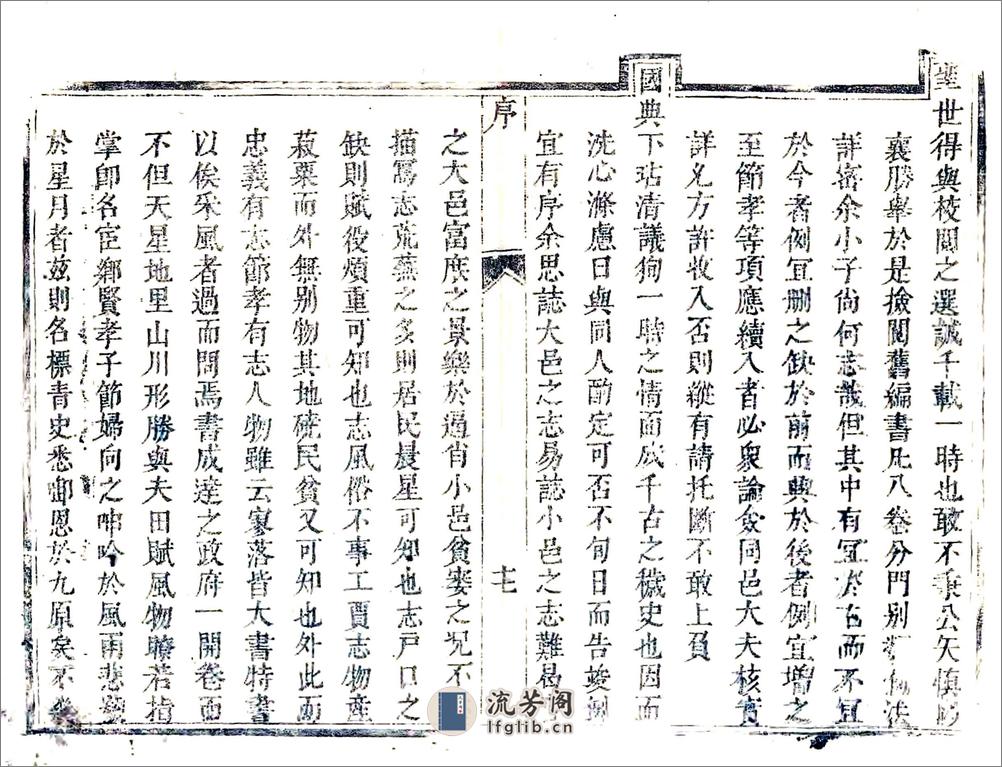 世得與校閱之選誠千載一時也敢不秉公矢慎
襄勝舉於是撿閱舊編書凡八卷分門別法
詳審余小子尚何志哉但其中有宜於古而不宜
於今者例宜刪之缺於前而興於後者例宜增之
至節孝等項應續入者必眾論僉同邑大夫核實
詳允方許收入否則縱有請托斷不敢上負
國典
下玷清議狥一時之情面成千古之穢史也因而
洗心滌慮日與同人酌定可否不旬日而告竣例
宜有序余思誌大邑之志易誌小邑之志難曷
序
十七
之大邑富庶之景樂於過肖小邑貧窭之况不
描寫志荒蕪之多則居民晨星可知也志戶口之
缺則賦役煩重可知也志風俗不事工賈志物産
菽粟而外無别物其地磽民貧又可知也外此而
忠義有志節孝有志人物雖云寥落皆大書特書
以俟采風者過而問焉書成達之政府一開卷而
不但天星地里山川形勝與夫田賦風物瞭若指
掌即名宦鄉賢孝子節婦向之呻吟於風雨悲
於星月者兹則名標青史悉啣恩於九原矣不
流芳阁
lfglib.cn